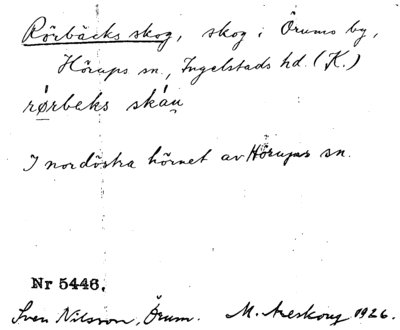 Rörbäcks skog, skog i Örums by,
Hörups sn., Ingelstads hd. (K.)
rǿrbeks skáu̯
I nordöstra hörnet av Hörups sn.
Nr 5446.
Sven Nilsson, Örum. M. Areskoug 1926.